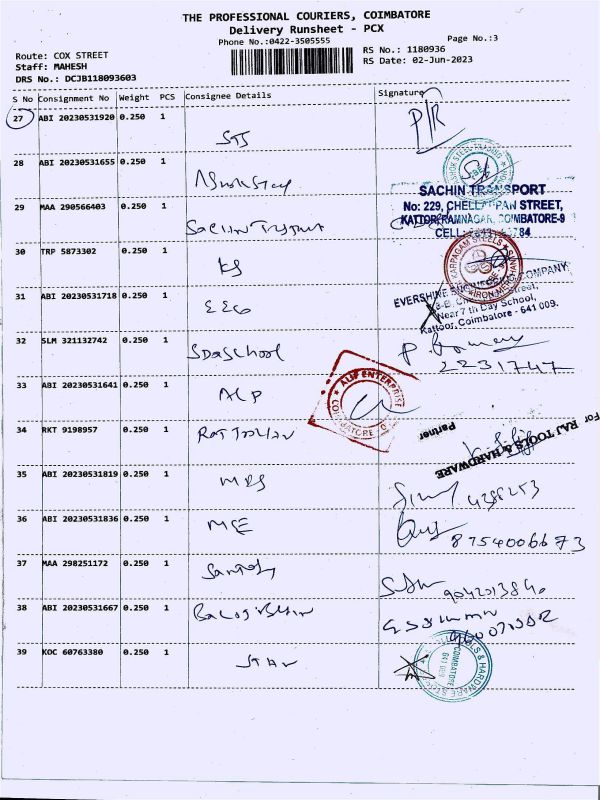 THE PROFESSIONAL COURIERS, COIMBATORE
Delivery Runsheet - PCX
Phone No.:0422-3505555
Page No.:3
Route: COX STREET
RS No.: 1180936
Staff: MAHESH
RS Date: 02-Jun-2023
DRS No.: DCJB118093603
S No Consignment No Weight PCS Consignee Details Signature
27 ABI 20230531920 0.250 1 P/R
STS
28 ABI 20230531655 0.250 1
SACHIN TRANSPORT
29 MAA 290566403 0.250 1
No: 229, CHELLAPPAN STREET,
KATTOR, RAMNAGAR, COIMBATORE-9
CELL:
30 TRP 5873302 0.250 1
KS
KARPAGAM STEELS
31 ABI 20230531718 0.250 1
EEC
EVERSHINE ENGINEERING COMPANY
Near 7 th Day School,
Kattoor, Coimbatore - 641 009.
32 SLM 321132742 0.250 1
SDA School
2231747
33 ABI 20230531641 0.250 1
ALP
ALIF ENTERPRISE
COIMBATORE
34 RKT 9198957 0.250 1
For RAJ TOOLS & HARDWARE
Partner
35 ABI 20230531819 0.250 1
MBS
4388253
36 ABI 20230531836 0.250 1
MSE
8754006673
37 MAA 298251172 0.250 1
Santosh
9042013840
38 ABI 20230531667 0.250 1
39 KOC 60763380 0.250 1
STAR
& HARDWARE
COIMBATORE
641 009